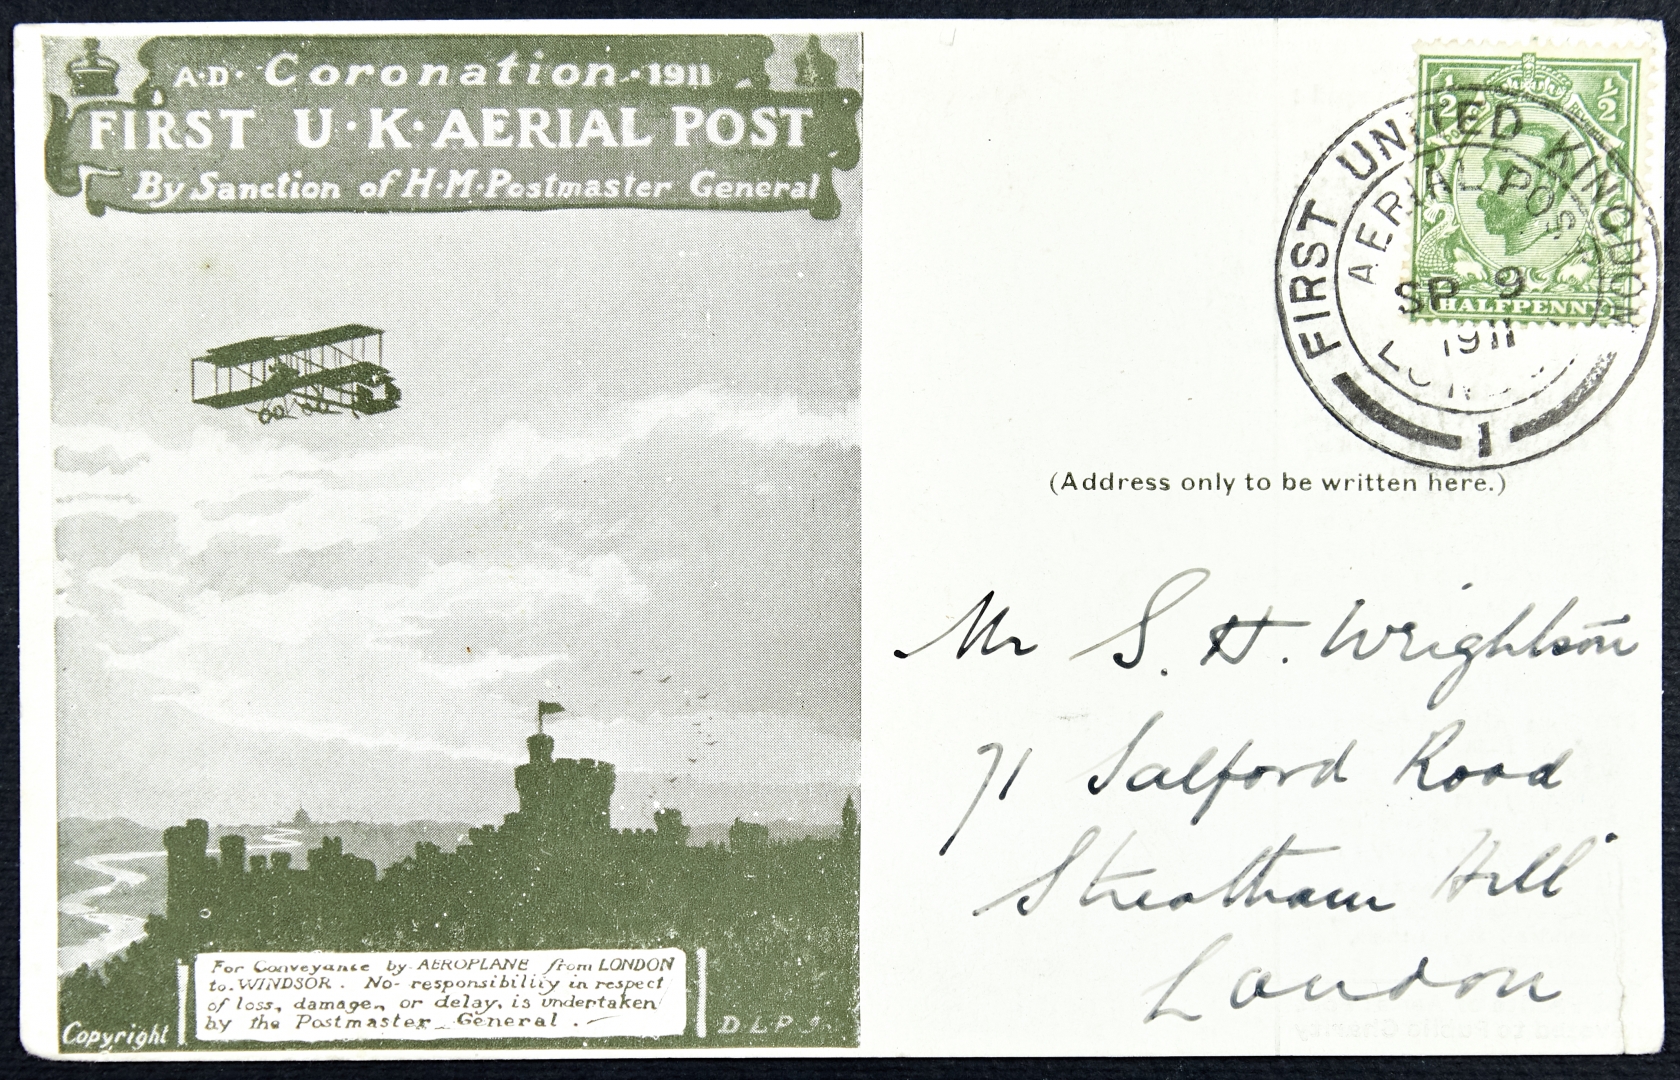 A·D· Coronation · 1911
FIRST U·K·AERIAL POST
By Sanction of H·M·Postmaster General
For Conveyance by AEROPLANE from LONDON
to WINDSOR. No responsibility in respect
of loss, damage, or delay, is undertaken
by the Postmaster General.
Copyright
½ ½
HALFPENNY
FIRST UNITED KINGDOM
AERIAL POST
SP 9
1911
LONDON
1
(Address only to be written here.)
Mr S. H. Wrightson
71 Salford Road
Streatham Hill
London